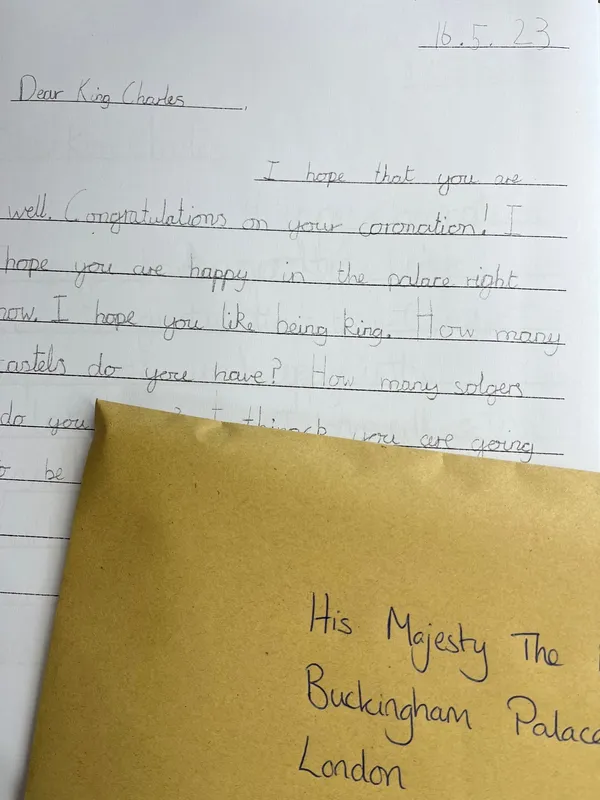 16.5.23
Dear King Charles,
I hope that you are
well. Congratulations on your coronation! I
hope you are happy in the palace right
now. I hope you like being king. How many
castels do you have? How many solgers
do you you are going
be
His Majesty The
Buckingham Palace
London